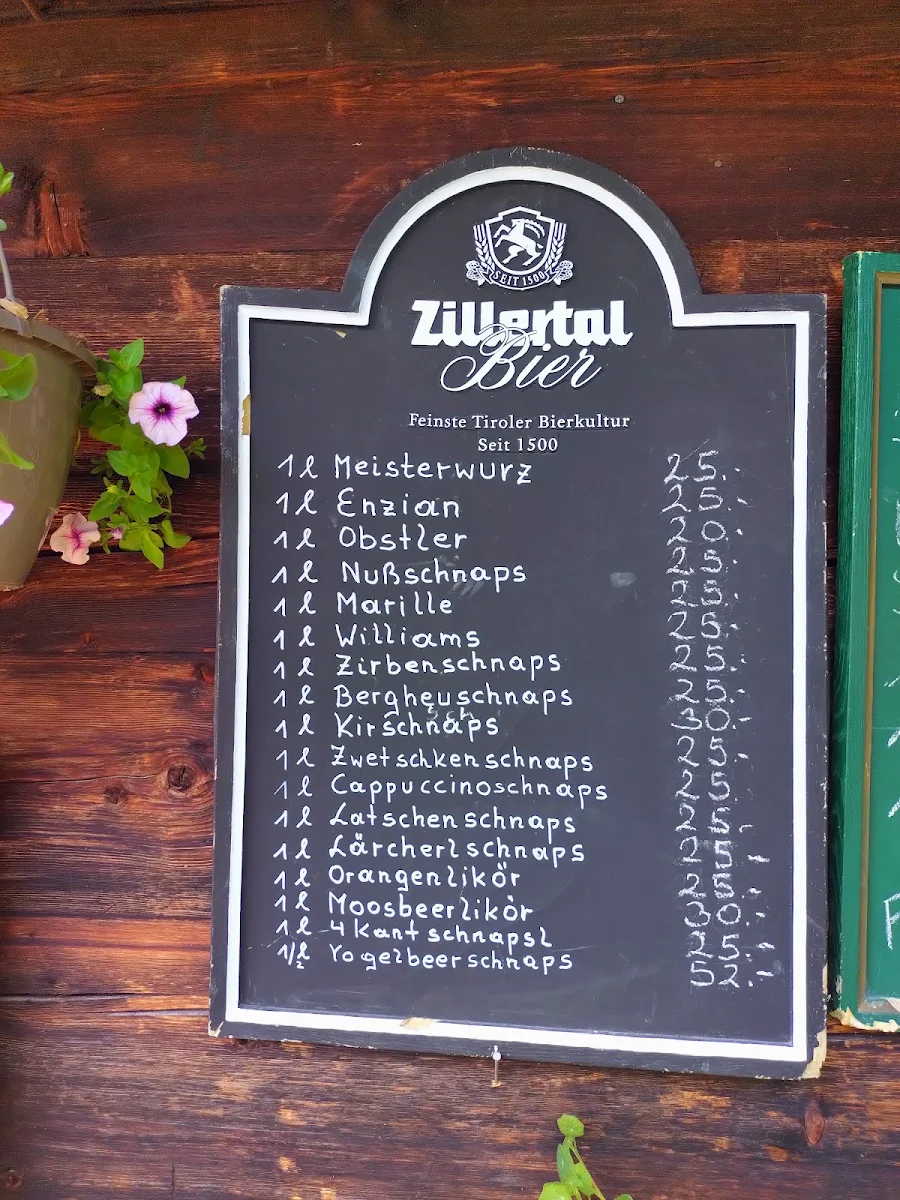 SEIT 1500
Zillertal
Bier
Feinste Tiroler Bierkultur
Seit 1500
1 l Meisterwurz 25.-
1 l Enzian 25.-
1 l Obstler 20.-
1 l Nußschnaps 25.-
1 l Marille 25.-
1 l Williams 25.-
1 l Zirbenschnaps 25.-
1 l Bergheuschnaps 25.-
sch
1 l Kirschnaps 30.-
1 l Zwetschkenschnaps 25.-
1 l Cappuccinoschnaps 25
1 l Latschenschnaps 25.-
1 l Lärcherlschnaps 25.-
1 l Orangenlikör 25.-
1 l Moosbeerlikör 30.-
1 l 4kantschnapsl 25.-
1/2 l Vogelbeerschnaps 52.-